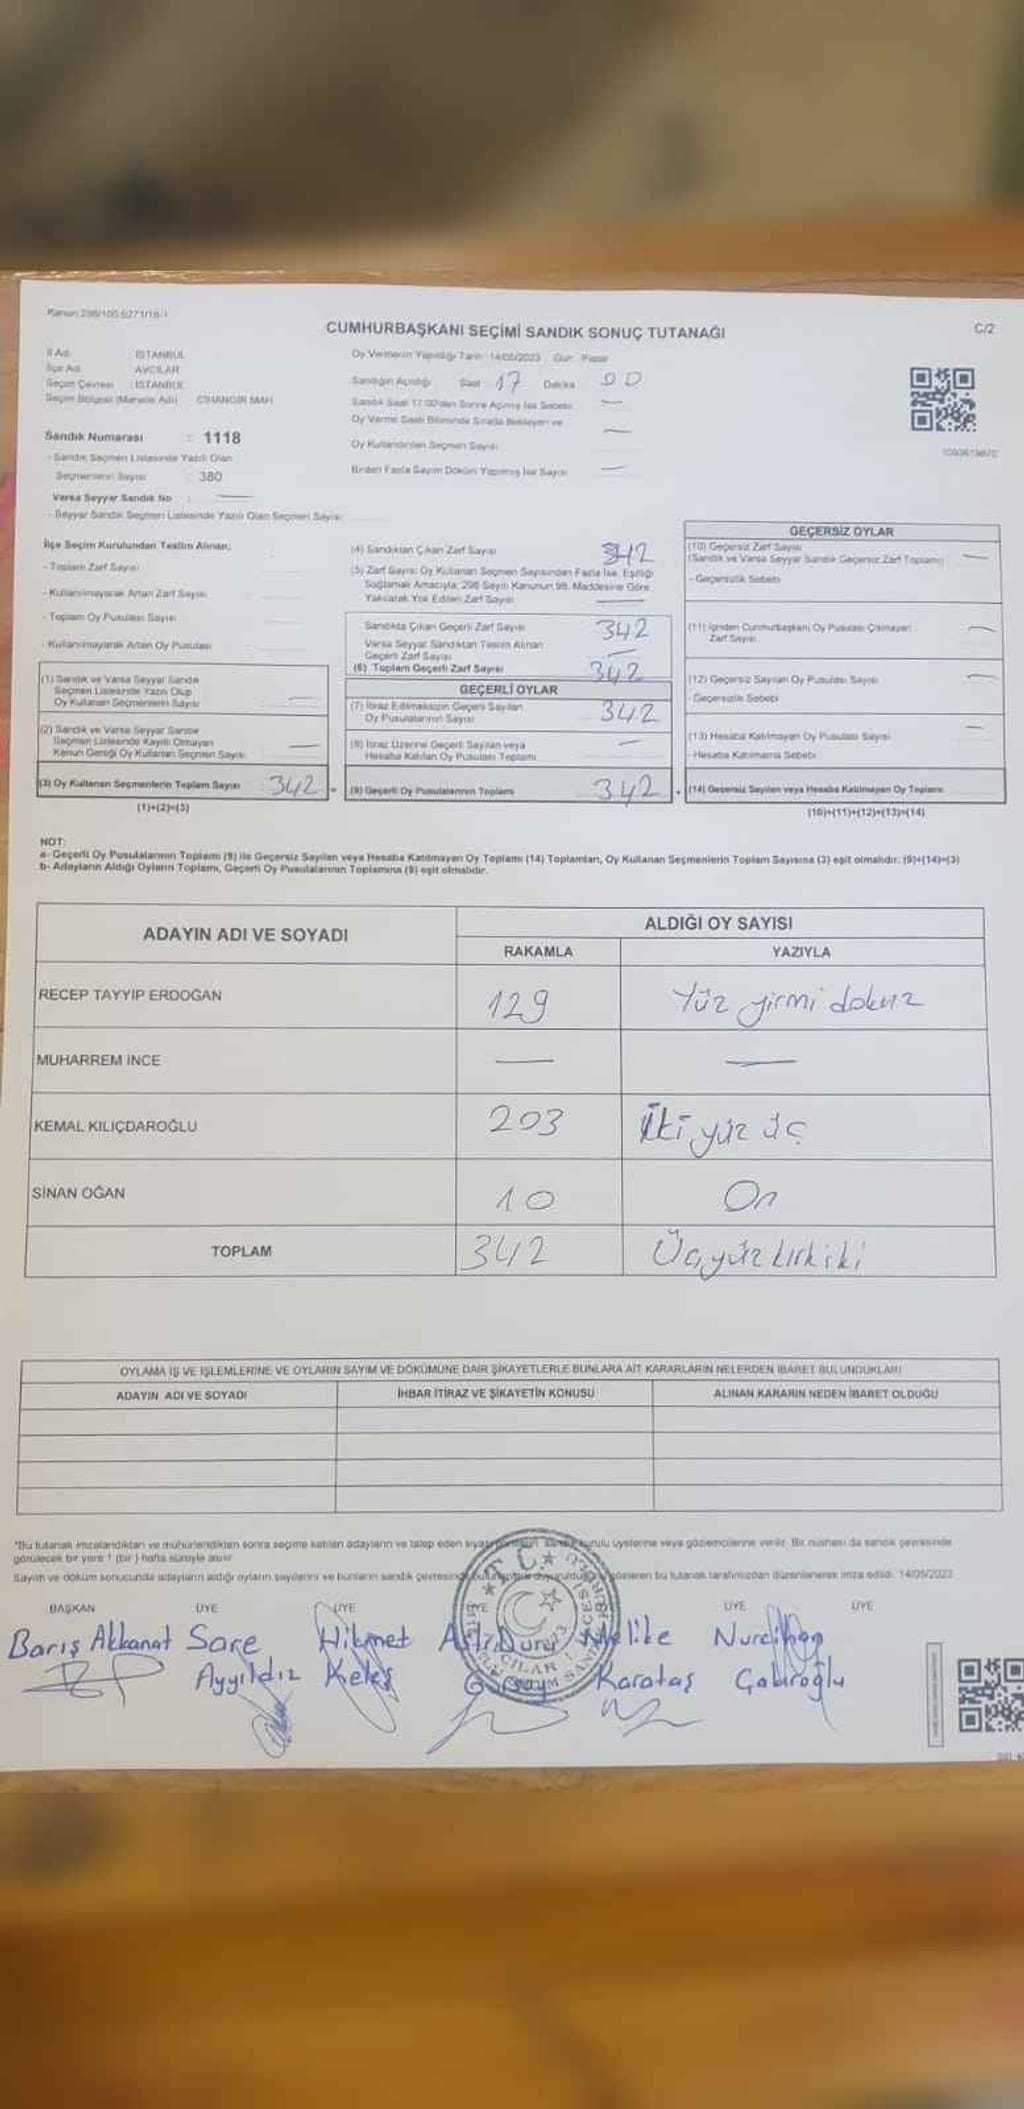 Kanun:298/105 6271/18-1
CUMHURBAŞKANI SEÇİMİ SANDIK SONUÇ TUTANAĞI
C/2
İl Adı : İSTANBUL
İlçe Adı : AVCILAR
Seçim Çevresi : İSTANBUL
Seçim Bölgesi (Mahalle Adı) CİHANGİR MAH
Oy Vermenin Yapıldığı Tarih : 14/05/2023 Gün : Pazar
Sandığın Açıldığı Saat 17 Dakika 00
Sandık Saat 17:00'den Sonra Açılmış İse Sebebi —
Oy Verme Saati Bitiminde Sırada Bekleyen ve
Oy Kullandırılan Seçmen Sayısı —
Birden Fazla Sayım Döküm Yapılmış İse Sayısı —
Sandık Numarası : 1118
- Sandık Seçmen Listesinde Yazılı Olan
Seçmenlerin Sayısı : 380
Varsa Seyyar Sandık No : —
- Seyyar Sandık Seçmen Listesinde Yazılı Olan Seçmen Sayısı:
İlçe Seçim Kurulundan Teslim Alınan;
- Toplam Zarf Sayısı
- Kullanılmayarak Artan Zarf Sayısı
- Toplam Oy Pusulası Sayısı
- Kullanılmayarak Artan Oy Pusulası
(1) Sandık ve Varsa Seyyar Sandık
Seçmen Listesinde Yazılı Olup
Oy Kullanan Seçmenlerin Sayısı —
(2) Sandık ve Varsa Seyyar Sandık
Seçmen Listesinde Kayıtlı Olmayan
Kanun Gereği Oy Kullanan Seçmen Sayısı —
(3) Oy Kullanan Seçmenlerin Toplam Sayısı 342
(1)+(2)=(3)
(4) Sandıktan Çıkan Zarf Sayısı 342
(5) Zarf Sayısı Oy Kullanan Seçmen Sayısından Fazla İse, Eşitliği
Sağlamak Amacıyla, 298 Sayılı Kanunun 98. Maddesine Göre
Yakılarak Yok Edilen Zarf Sayısı —
Sandıkta Çıkan Geçerli Zarf Sayısı 342
Varsa Seyyar Sandıktan Teslim Alınan
Geçerli Zarf Sayısı —
(6) Toplam Geçerli Zarf Sayısı 342
GEÇERLİ OYLAR
(7) İtiraz Edilmeksizin Geçerli Sayılan
Oy Pusulalarının Sayısı 342
(8) İtiraz Üzerine Geçerli Sayılan veya
Hesaba Katılan Oy Pusulası Toplamı —
(9) Geçerli Oy Pusulalarının Toplamı 342
GEÇERSİZ OYLAR
(10) Geçersiz Zarf Sayısı
(Sandık ve Varsa Seyyar Sandık Geçersiz Zarf Toplamı) —
- Geçersizlik Sebebi
(11) İçinden Cumhurbaşkanı Oy Pusulası Çıkmayan
Zarf Sayısı —
(12) Geçersiz Sayılan Oy Pusulası Sayısı —
- Geçersizlik Sebebi
(13) Hesaba Katılmayan Oy Pusulası Sayısı —
- Hesaba Katılmama Sebebi
(14) Geçersiz Sayılan veya Hesaba Katılmayan Oy Toplamı
(10)+(11)+(12)+(13)=(14)
NOT:
a- Geçerli Oy Pusulalarının Toplamı (9) ile Geçersiz Sayılan veya Hesaba Katılmayan Oy Toplamı (14) Toplamları, Oy Kullanan Seçmenlerin Toplam Sayısına (3) eşit olmalıdır. (9)+(14)=(3)
b- Adayların Aldığı Oyların Toplamı, Geçerli Oy Pusulalarının Toplamına (9) eşit olmalıdır.
ADAYIN ADI VE SOYADI ALDIĞI OY SAYISI
RAKAMLA YAZIYLA
RECEP TAYYİP ERDOĞAN 129 Yüz yirmi dokuz
MUHARREM İNCE — —
KEMAL KILIÇDAROĞLU 203 İki yüz üç
SİNAN OĞAN 10 On
TOPLAM 342 Üçyüzkırkiki
OYLAMA İŞ VE İŞLEMLERİNE VE OYLARIN SAYIM VE DÖKÜMÜNE DAİR ŞİKAYETLERLE BUNLARA AİT KARARLARIN NELERDEN İBARET BULUNDUKLARI
ADAYIN ADI VE SOYADI İHBAR İTİRAZ VE ŞİKAYETİN KONUSU ALINAN KARARIN NEDEN İBARET OLDUĞU
*Bu tutanak imzalandıktan ve mühürlendikten sonra seçime katılan adayların ve talep eden siyasi kurulu üyelerine veya gözlemcilerine verilir. Bir nüshası da sandık çevresinde
görülecek bir yere 1 (bir) hafta süreyle asılır.
Sayım ve döküm sonucunda adayların aldığı oyların sayılarını ve bunların sandık çevresinde gösteren bu tutanak tarafımızdan düzenlenerek imza edildi. 14/05/2023
BAŞKAN ÜYE ÜYE ÜYE ÜYE ÜYE
Barış Akkanat Sare Hikmet Aslı Duru Melike Nurcihan
Ayyıldız Keleş Karataş Gabıroğlu
T.C.